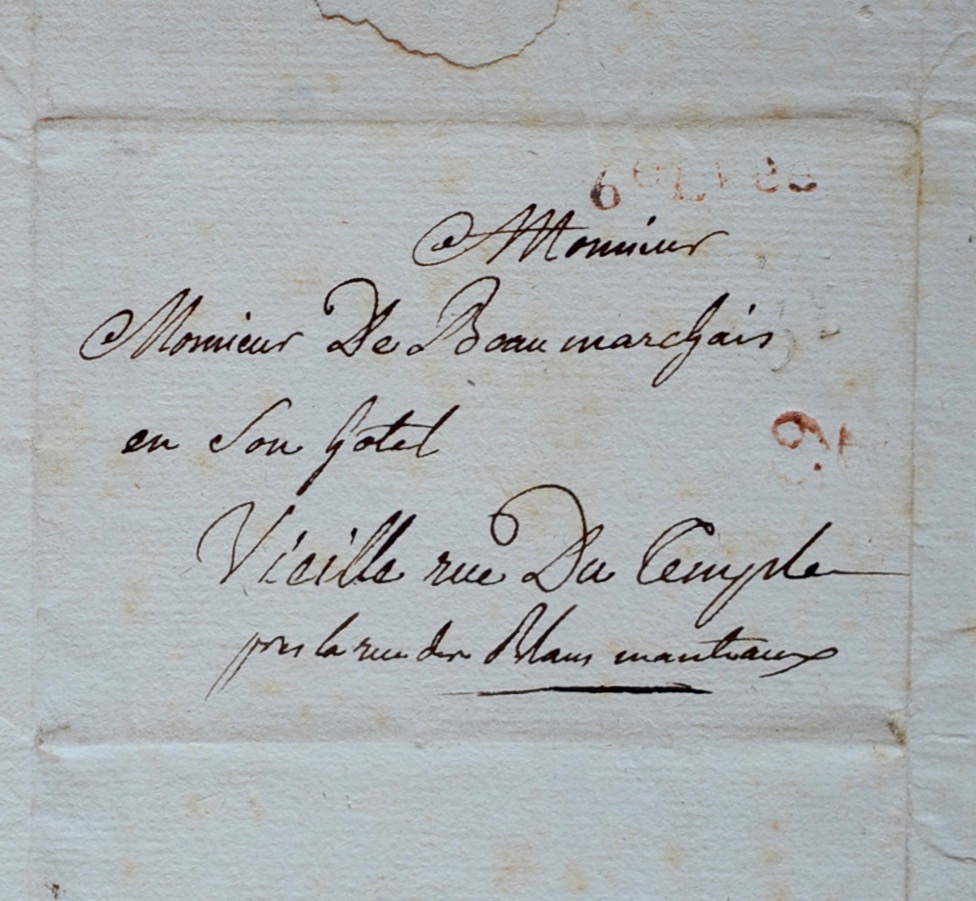 Monsieur
Monsieur De Beaumarchais
en Son hotel
Vieille rue Du Temple
pres la rue des Blans manteaux